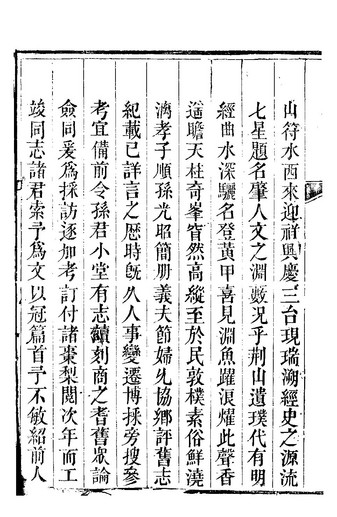 山符水西來迎祥興慶三台現瑞溯經史之源流
七星題名肇人文之淵藪況乎荆山遺璞代有明
經曲水深驪名登黃甲喜見淵魚躍浪燿此聲香
遥瞻天柱奇峯窅然高縱至於民敦樸素俗鮮澆
漓孝子順孫光昭簡册義夫節婦允協鄉評舊志
紀載已詳言之歴時旣久人事變遷博採旁搜參
考宜備前令孫君小堂有志續刻商之耆舊眾論
僉同爰爲採訪逐加考訂付諸棗梨閱次年而工
竣同志諸君索予爲文以冠篇首予不敏紹前人